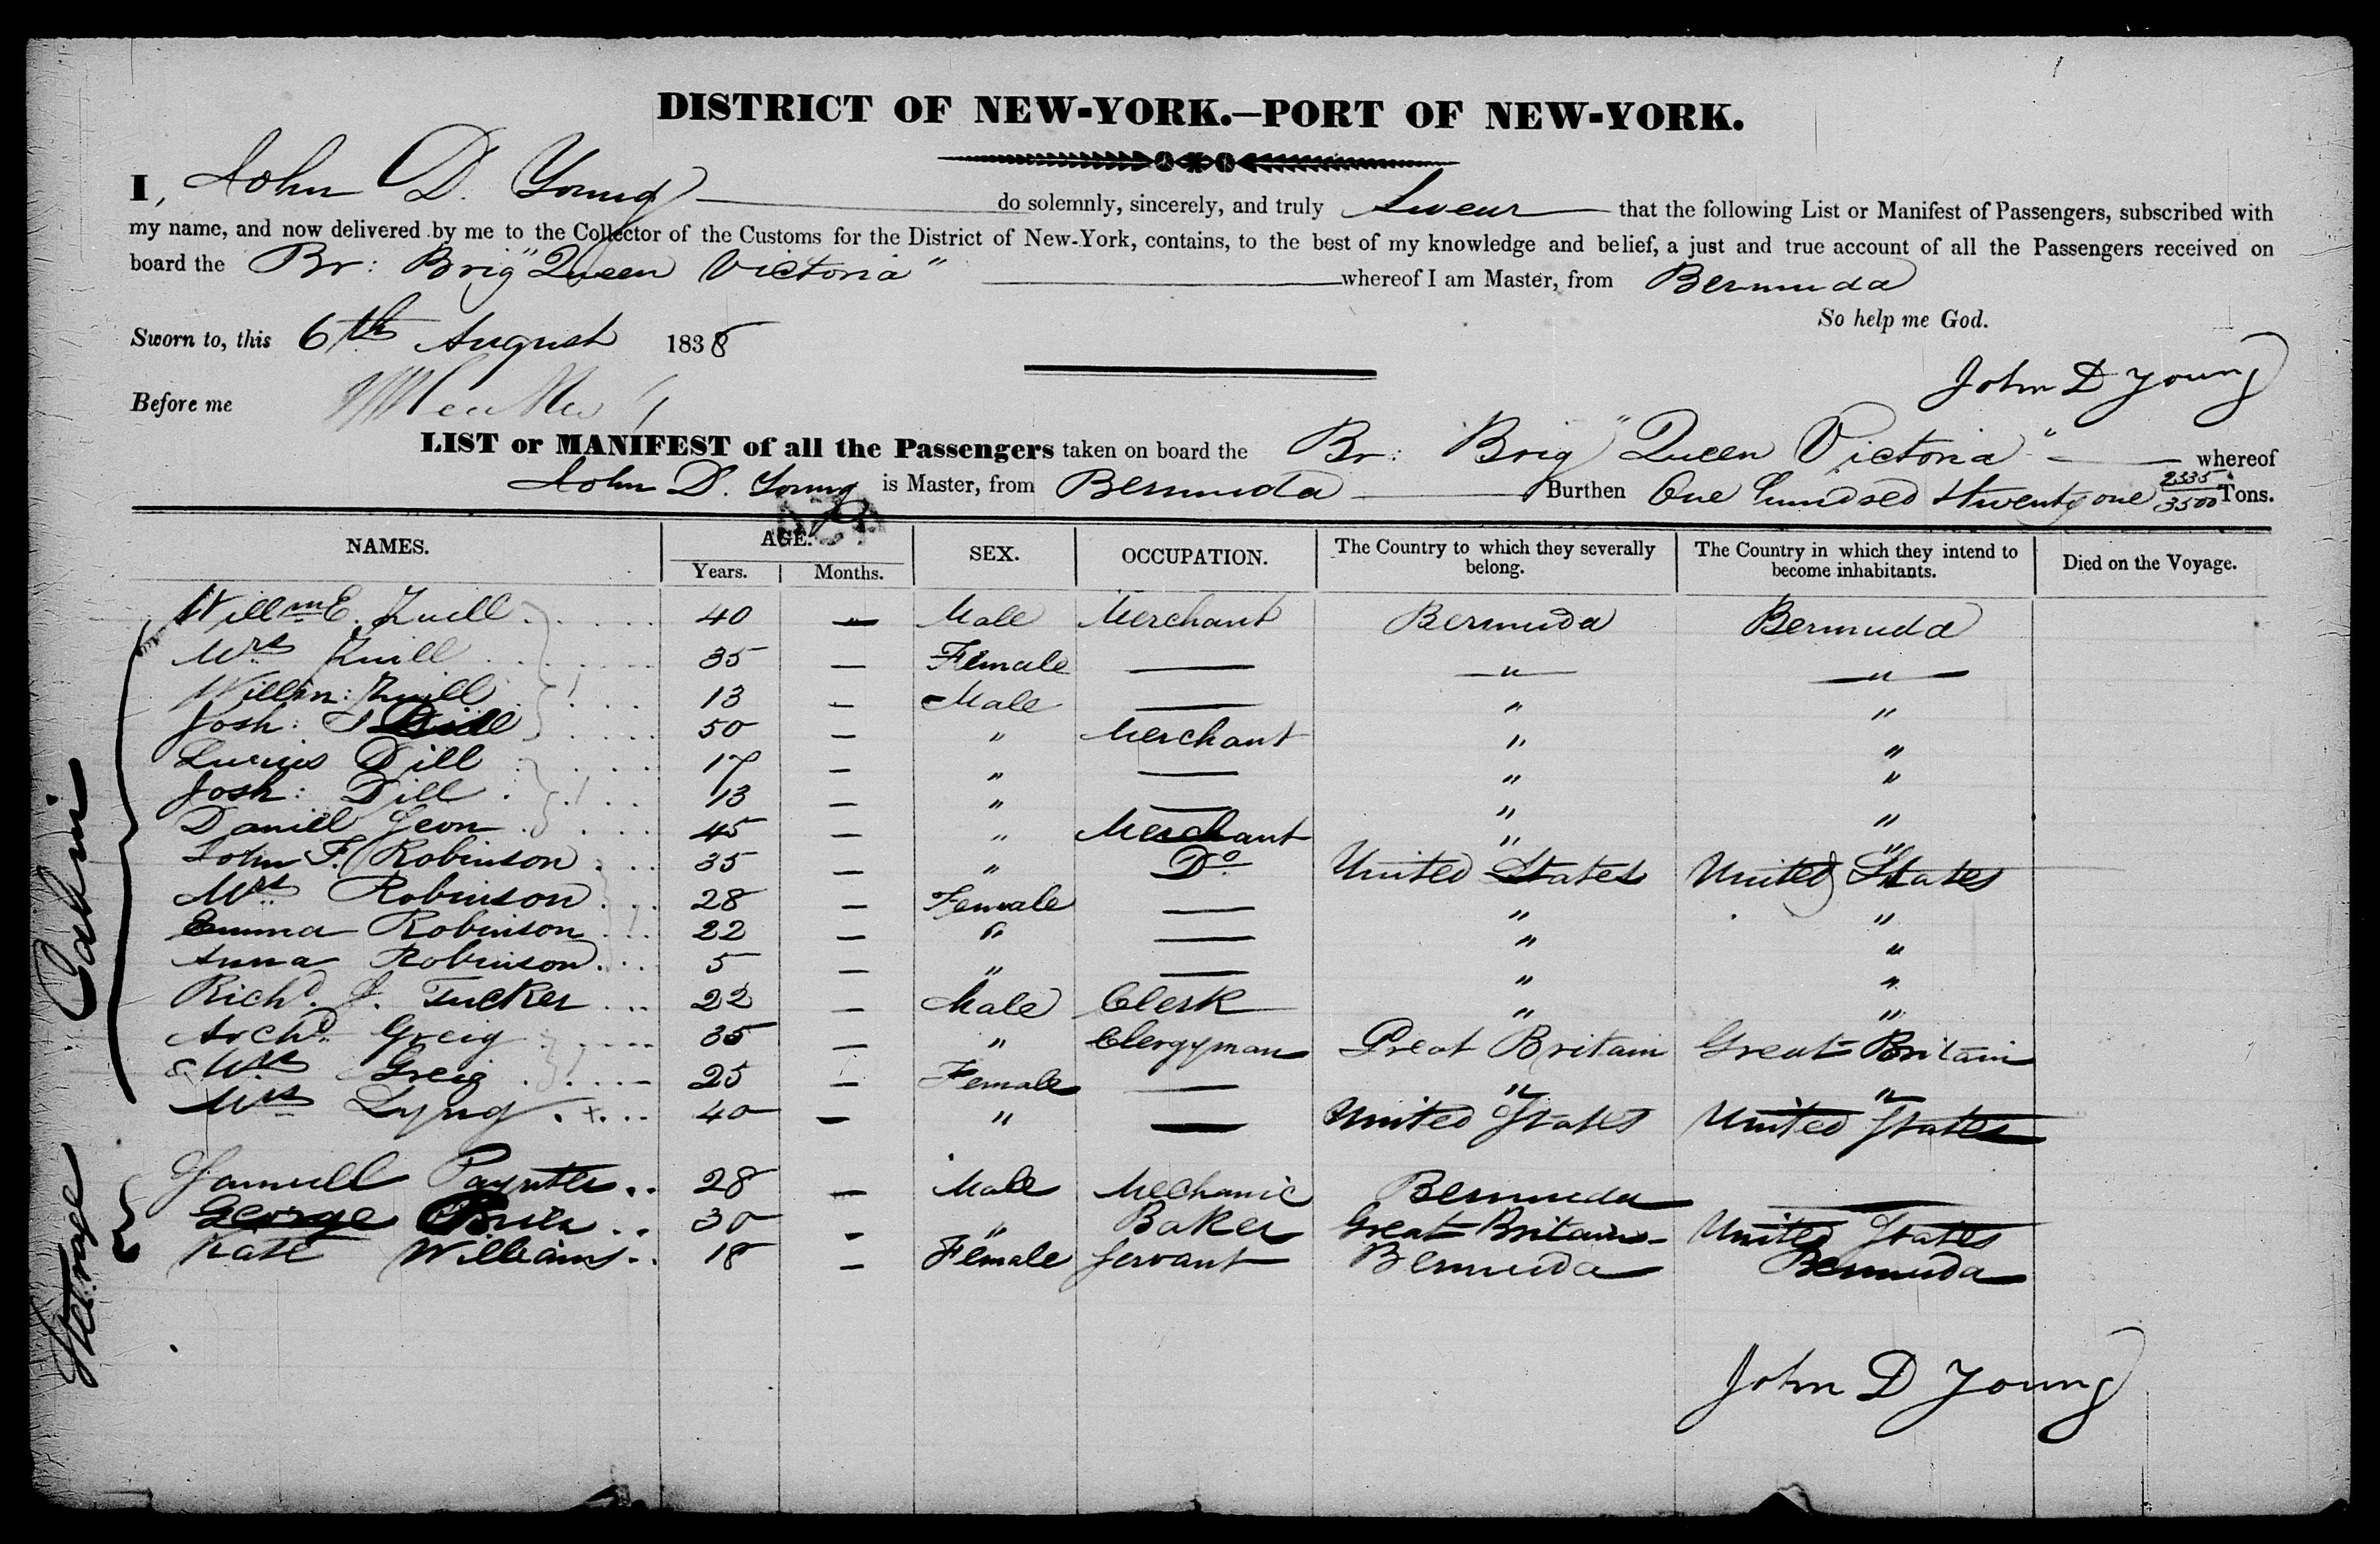 DISTRICT OF NEW-YORK.—PORT OF NEW-YORK.
I, John D. Young do solemnly, sincerely, and truly Swear that the following List or Manifest of Passengers, subscribed with
my name, and now delivered by me to the Collector of the Customs for the District of New-York, contains, to the best of my knowledge and belief, a just and true account of all the Passengers received on
board the Br: Brig "Queen Victoria" whereof I am Master, from Bermuda
So help me God.
Sworn to, this 6th August 1838
John D Young
Before me
LIST or MANIFEST of all the Passengers taken on board the Br: Brig "Queen Victoria" whereof
John D. Young is Master, from Bermuda Burthen One hundred & twenty one 2335/3500 Tons.
NAMES. AGE. SEX. OCCUPATION. The Country to which they severally belong. The Country in which they intend to become inhabitants. Died on the Voyage.
Years. Months.
Cabin
Willm E. Zuill 40 — Male Merchant Bermuda Bermuda
Mrs Zuill 35 — Female — " "
Willm: Zuill 13 — Male — " "
Josh: Dill 50 — " Merchant " "
Lucius Dill 17 — " — " "
Josh: Dill 13 — " — " "
Daniel Leon 45 — " Merchant " "
John F. Robinson 35 — " Do United States United States
Mrs Robinson 28 — Female — " "
Emma Robinson 22 — " — " "
Anna Robinson 5 — " — " "
Richd. J. Tucker 22 — Male Clerk " "
Archd. Greig 35 — " Clergyman Great Britain Great Britain
Mrs Greig 25 — Female — " "
Mrs Lyng 40 — " — United States United States
Steerage
Samuell Paynter 28 — Male Mechanic Bermuda —
George 30 — " Baker Great Britain United States
Kate Williams 18 — Female Servant Bermuda Bermuda
John D Young